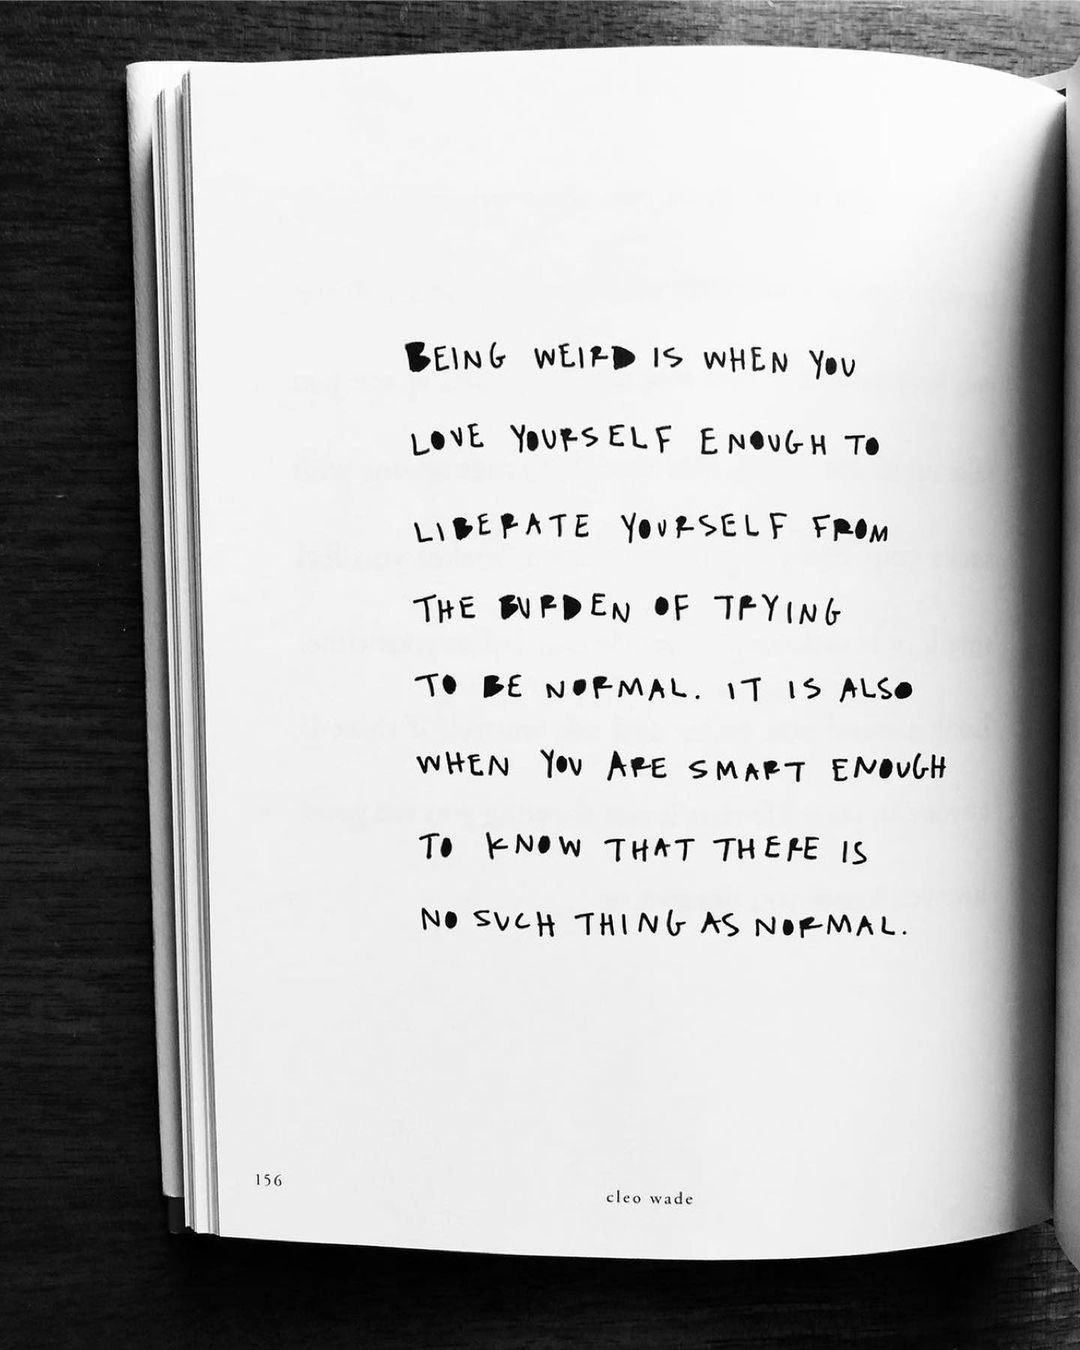 BEING WEIRD IS WHEN YOU
LOVE YOURSELF ENOUGH TO
LIBERATE YOURSELF FROM
THE BURDEN OF TRYING
TO BE NORMAL. IT IS ALSO
WHEN YOU ARE SMART ENOUGH
TO KNOW THAT THERE IS
NO SUCH THING AS NORMAL.
156
cleo wade